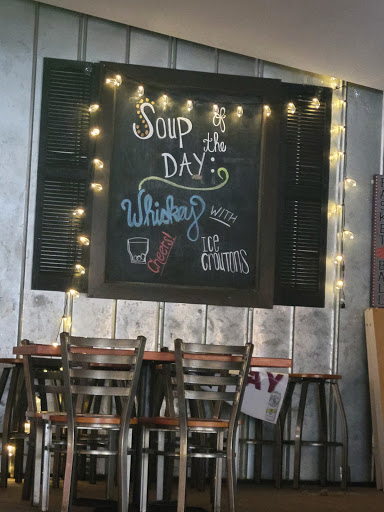 Soup of
the
DAY:
Whiskey WITH
Cheers! ICE
CROUTONS
AY